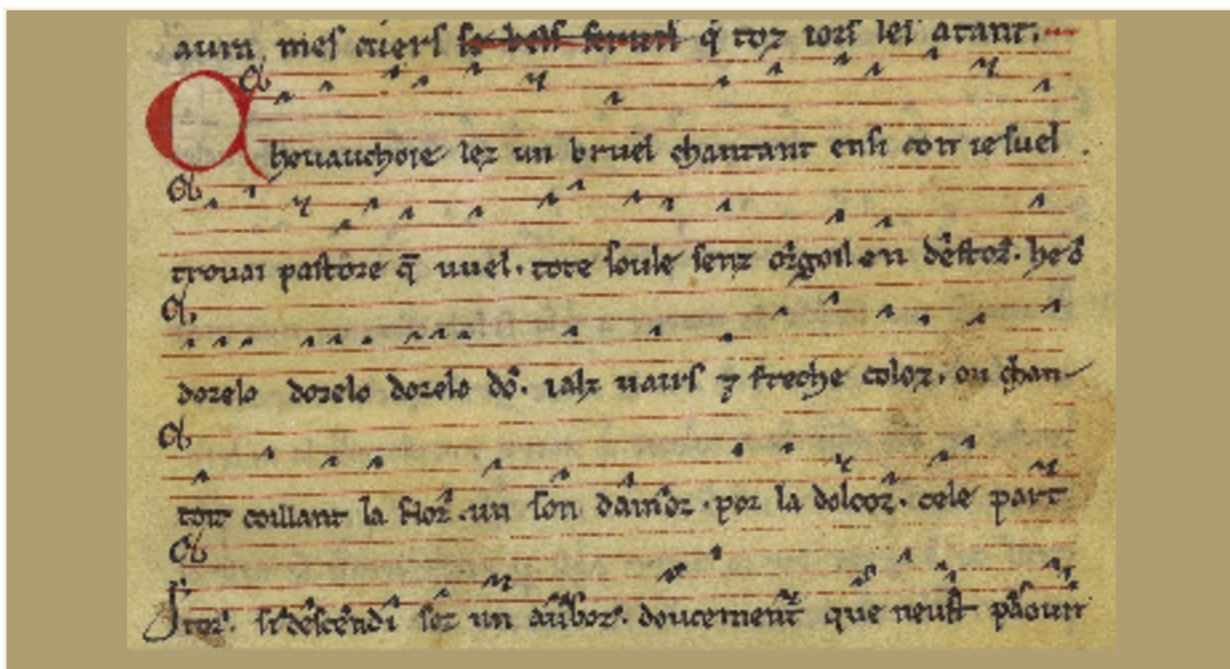 auun mes cuers q̄ toz iors lei atant.
Cheuauchoie lez un bruel chantant ensi con ie suel .
trouai pastore q̄ uuel . tote soule senz orgoil en destor . he d
dorelo dorelo dorelo do . ialz uairs ⁊ fresche color . ou chan-
toit coillant la flor . un son damor . por la dolcor . cele part
tor . si descendi soz un aubor . doucement que neust paour